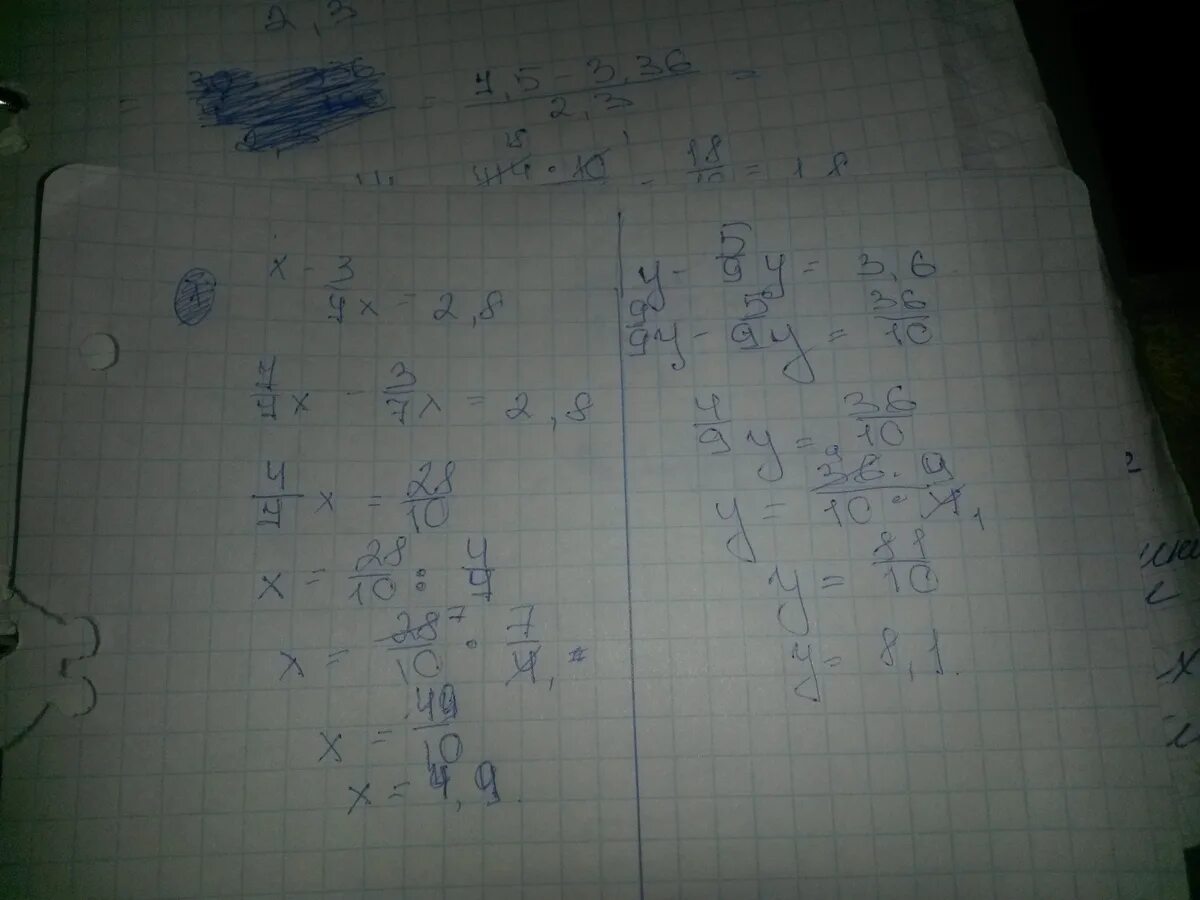 2,3
= = (7,5 - 3,36)/2,3 =
18/10 = 1,8
x - 3/7x = 2,8
7/7x - 3/7x = 2,8
4/7 x = 28/10
x = 28/10 : 4/7
x = 28/10 · 7/4 =
7
1
x = 49/10
x = 4,9
y - 5/9 y = 3,6
9/9 y - 5/9 y = 36/10
4/9 y = 36/10
y = (36 · 9)/(10 · 4)
9
1
y = 81/10
y = 8,1